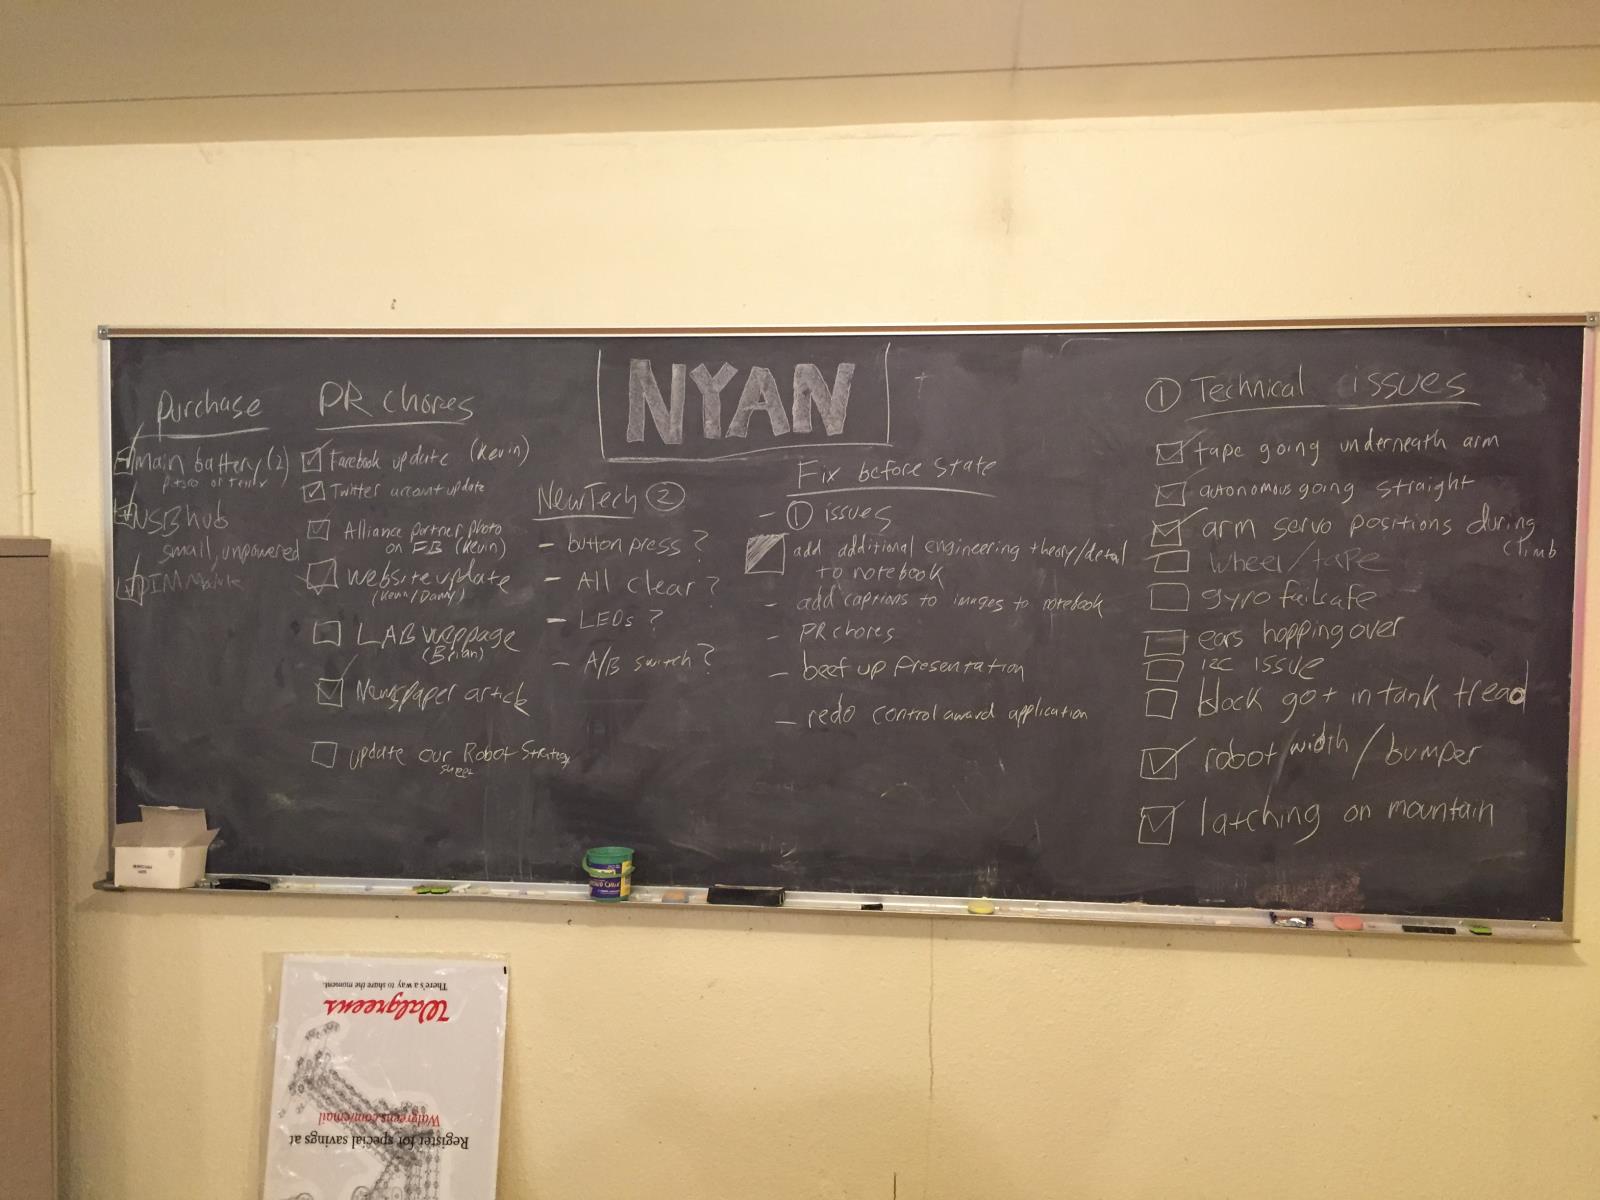 NYAN
Purchase
main battery (2)
USB hub
small, unpowered
DIM Module
PR chores
Facebook update (Kevin)
Twitter account update
Alliance partner photo
on FB (Kevin)
Website update
(Kevin/Danny)
LAB webpage
(Brian)
Newspaper article
update our Robot Strategy
sheet
New Tech ②
- button press?
- All clear?
- LEDs?
- A/B switch?
Fix before State
- ① issues
add additional engineering theory/detail
to notebook
- add captions to images to notebook
- PR chores
- beef up presentation
- redo control award application
① Technical issues
tape going underneath arm
autonomous going straight
arm servo positions during
climb
wheel/tape
gyro failsafe
ears hopping over
I2C issue
block got in tank tread
robot width / bumper
latching on mountain
Register for special savings at
Walgreens.com/email
Walgreens
There's a way to share the moment.